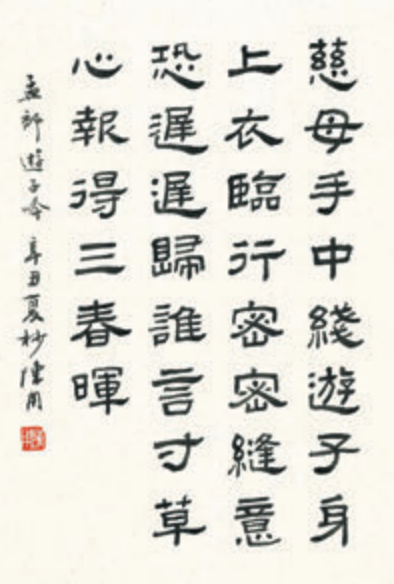 慈母手中綫遊子身
上衣臨行密密縫意
恐遲遲歸誰言寸草
心報得三春暉
孟郊遊子吟 辛丑夏杪陳